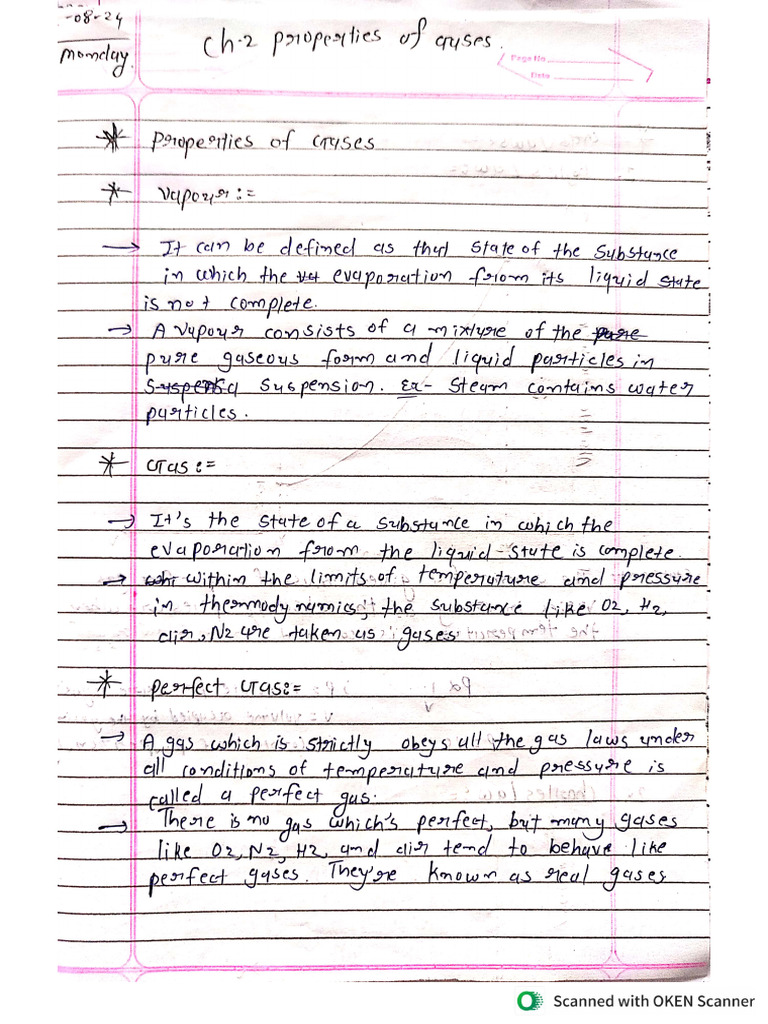 -08-24
Monday
Ch.2 properties of Gases.
Page No
Date
* Properties of Gases
* Vapour :=
→ It can be defined as that state of the substance
in which the evaporation from its liquid state
is not complete.
→ A vapour consists of a mixture of the pure
pure gaseous form and liquid particles in
a suspension. Ex- Steam contains water
particles.
* Gas :=
→ It's the state of a substance in which the
evaporation from the liquid state is complete.
→ within the limits of temperature and pressure
in thermodynamics, the substance like O2, H2,
air, N2 are taken as gases.
* perfect Gas:=
→ A gas which is strictly obeys all the gas laws under
all conditions of temperature and pressure is
called a perfect gas.
→ There is no gas which's perfect, but many gases
like O2, N2, H2, and air tend to behave like
perfect gases. They're known as real gases
Scanned with OKEN Scanner